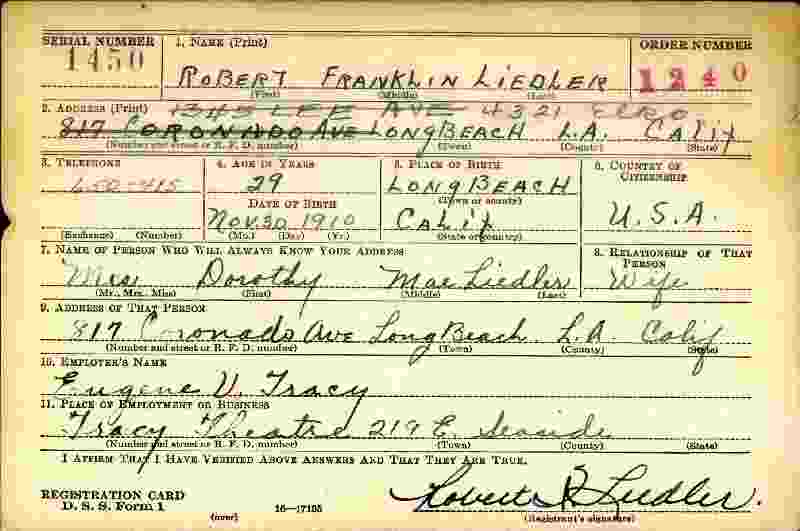 SERIAL NUMBER 1. NAME (Print) ORDER NUMBER
1450 ROBERT FRANKLIN LIEDLER 1240
(First) (Middle) (Last)
2. ADDRESS (Print) 1345 LEE AVE 4321
817 CORONADO AVE LONG BEACH L.A. CALIF
(Number and street or R. F. D. number) (Town) (County) (State)
3. TELEPHONE 4. AGE IN YEARS 5. PLACE OF BIRTH 6. COUNTRY OF CITIZENSHIP
650-415 29 LONG BEACH U.S.A.
(Town or county)
DATE OF BIRTH
NOV. 30 1910 CALIF
(Exchange) (Number) (Mo.) (Day) (Yr.) (State or country)
7. NAME OF PERSON WHO WILL ALWAYS KNOW YOUR ADDRESS 8. RELATIONSHIP OF THAT PERSON
Mrs Dorothy Mae Liedler Wife
(Mr., Mrs., Miss) (First) (Middle) (Last)
9. ADDRESS OF THAT PERSON
817 Coronado Ave Long Beach L.A. Calif
(Number and street or R. F. D. number) (Town) (County) (State)
10. EMPLOYER'S NAME
Eugene V. Tracy
11. PLACE OF EMPLOYMENT OR BUSINESS
Tracy Theatre 219 E. Seaside
(Number and street or R. F. D. number) (Town) (County) (State)
I AFFIRM THAT I HAVE VERIFIED ABOVE ANSWERS AND THAT THEY ARE TRUE.
REGISTRATION CARD Robert F. Liedler.
D. S. S. Form 1 (over) 16-17105 (Registrant's signature)